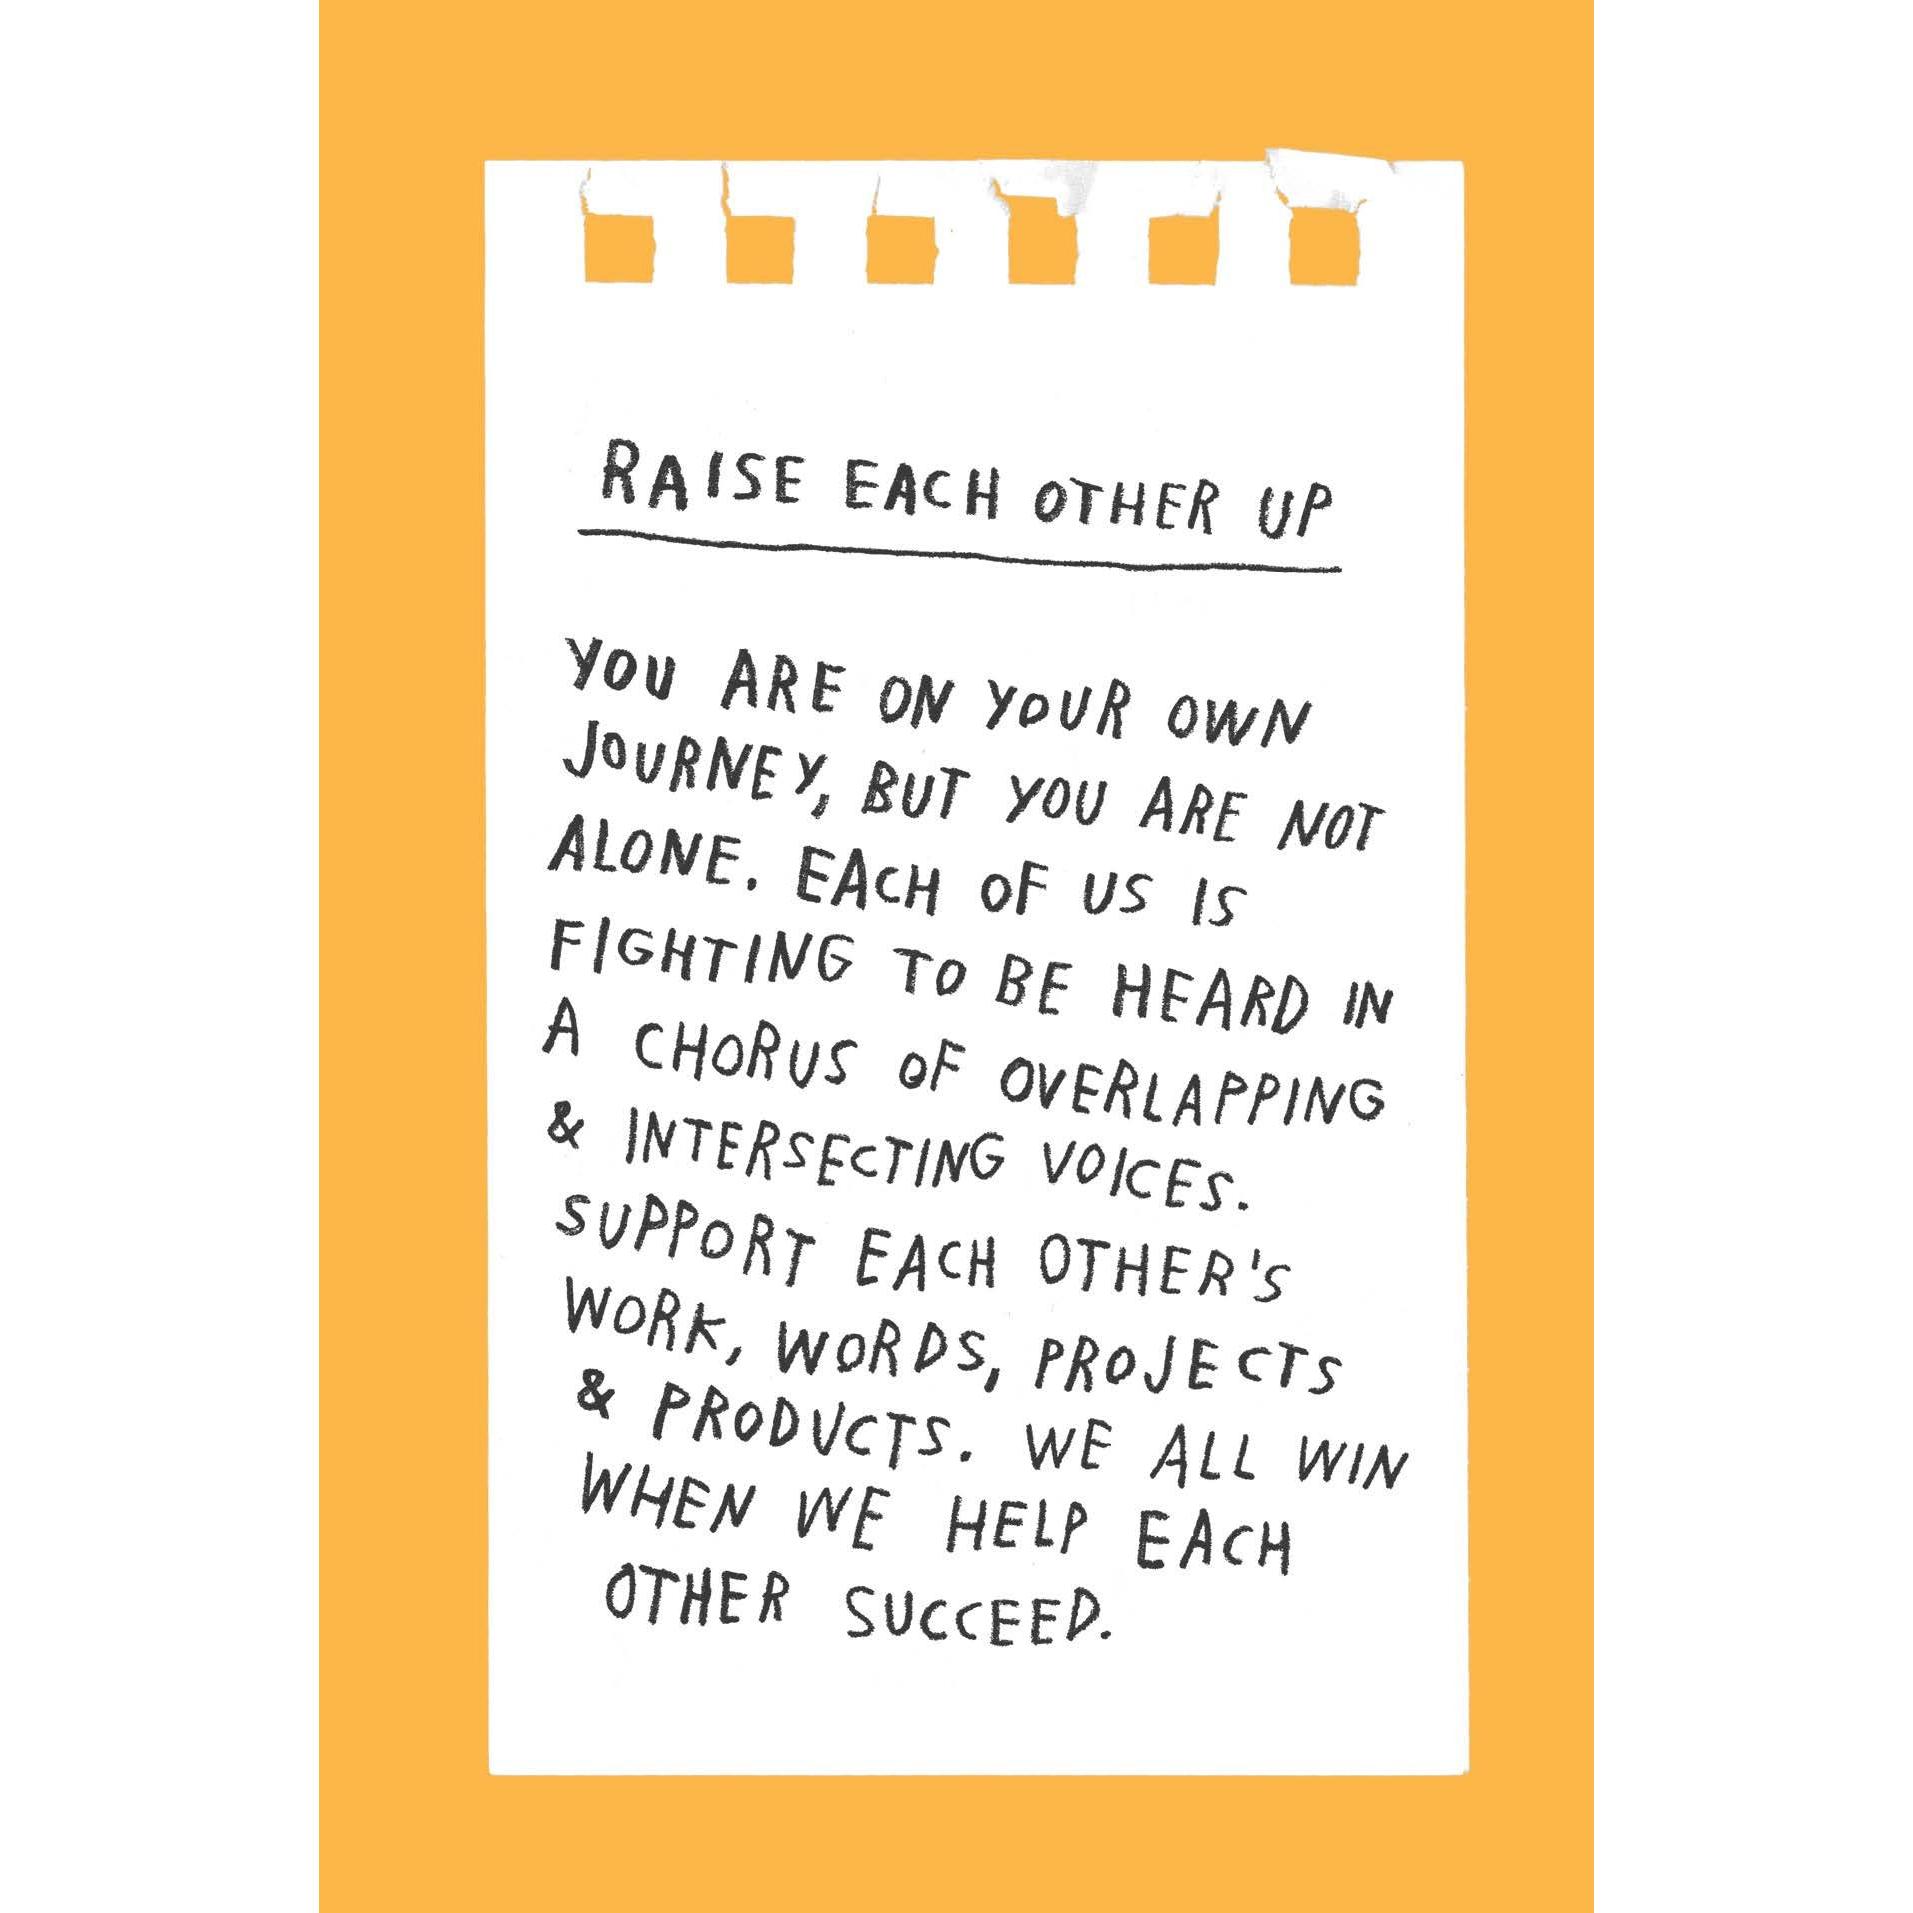 RAISE EACH OTHER UP
YOU ARE ON YOUR OWN
JOURNEY, BUT YOU ARE NOT
ALONE. EACH OF US IS
FIGHTING TO BE HEARD IN
A CHORUS OF OVERLAPPING
& INTERSECTING VOICES.
SUPPORT EACH OTHER'S
WORK, WORDS, PROJECTS
& PRODUCTS. WE ALL WIN
WHEN WE HELP EACH
OTHER SUCCEED.